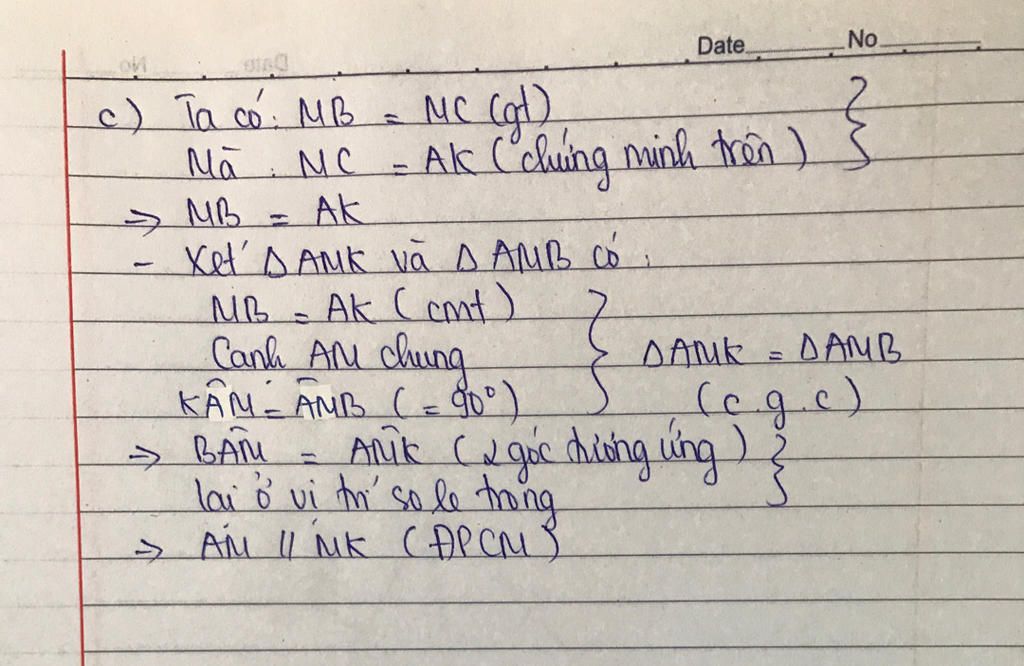 Date No
c) Ta có: MB = MC (gt)
Mà : MC = AK (chứng minh trên)
=> MB = AK
- Xét ΔAMK và ΔAMB có:
MB = AK (cmt)
Cạnh AM chung
KÂM = AM̂B (= 90°)
ΔAMK = ΔAMB
(c.g.c)
=> BÂM = AM̂K (2 góc tương ứng)
lại ở vị trí so le trong
=> AM // MK (ĐPCM)